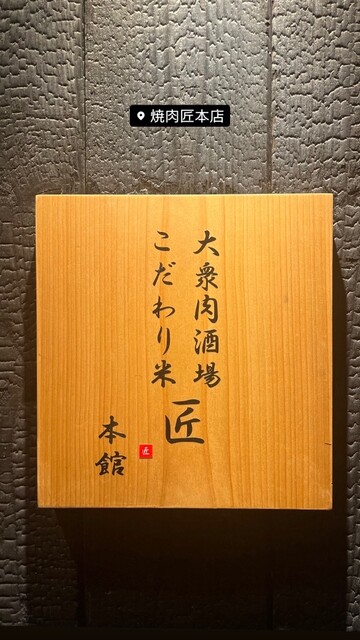 焼肉匠本店
大衆肉酒場
こだわり米
匠
匠
本館